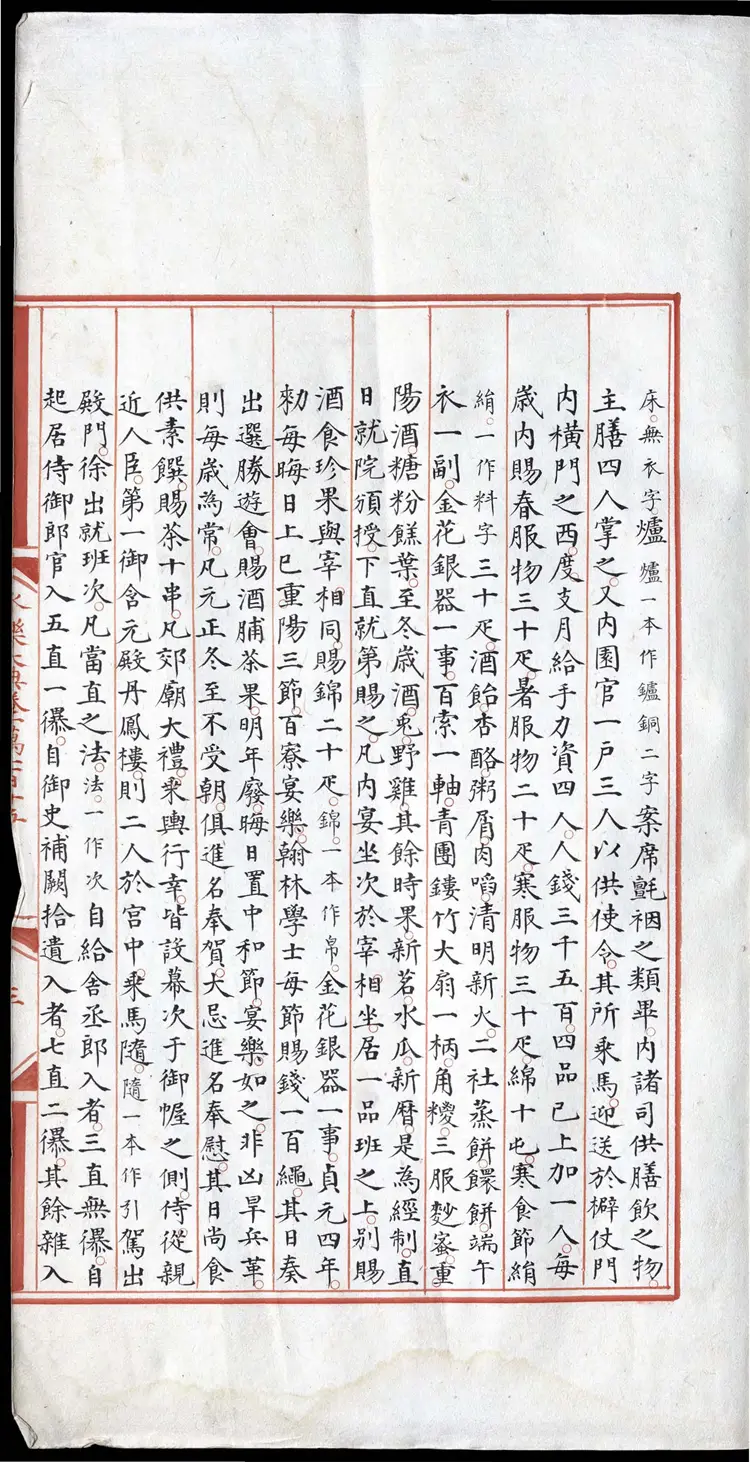 床無衣字爐爐一本作鑪銅二字案席氈裀之類畢內諸司供膳飲之物
主膳四人掌之又內園官一戶三人以供使令其所乘馬迎送於檘仗門
內橫門之西度支月給手力資四人人錢三千五百四品已上加一人每
歲內賜春服物三十疋暑服物二十疋寒服物三十疋綿十屯寒食節絹
絹一作料字三十疋酒飴杏酪粥屑肉啗清明新火二社蒸餅餻餅端午
衣一副金花銀器一事百索一軸青團鏤竹大扇一柄角糭三服麨蜜重
陽酒糖粉餻葉至冬歲酒兎野雞其餘時果新茗水瓜新曆是為經制直
日就院頒授下直就第賜之凡內宴坐次於宰相坐居一品班之上別賜
酒食珍果與宰相同賜錦二十疋錦一本作帛金花銀器一事貞元四年
勑每晦日上巳重陽三節百寮宴樂翰林學士每節賜錢一百繩其日奏
出選勝遊會賜酒脯茶果明年廢晦日置中和節宴樂如之非凶旱兵革
則每歲為常凡元正冬至不受朝俱進名奉賀大忌進名奉慰其日尚食
供素饌賜茶十串凡郊廟大禮乘輿行幸皆設幕次于御幄之側侍從親
近人臣第一御含元殿丹鳳樓則二人於宮中乘馬隨隨一本作引駕出
殿門徐出就班次凡當直之法法一作次自給舍丞郎入者三直無儤自
起居侍御郎官入五直一儤自御史補闕拾遺入者七直二儤其餘雜入
永樂大典卷一萬一百十五
三